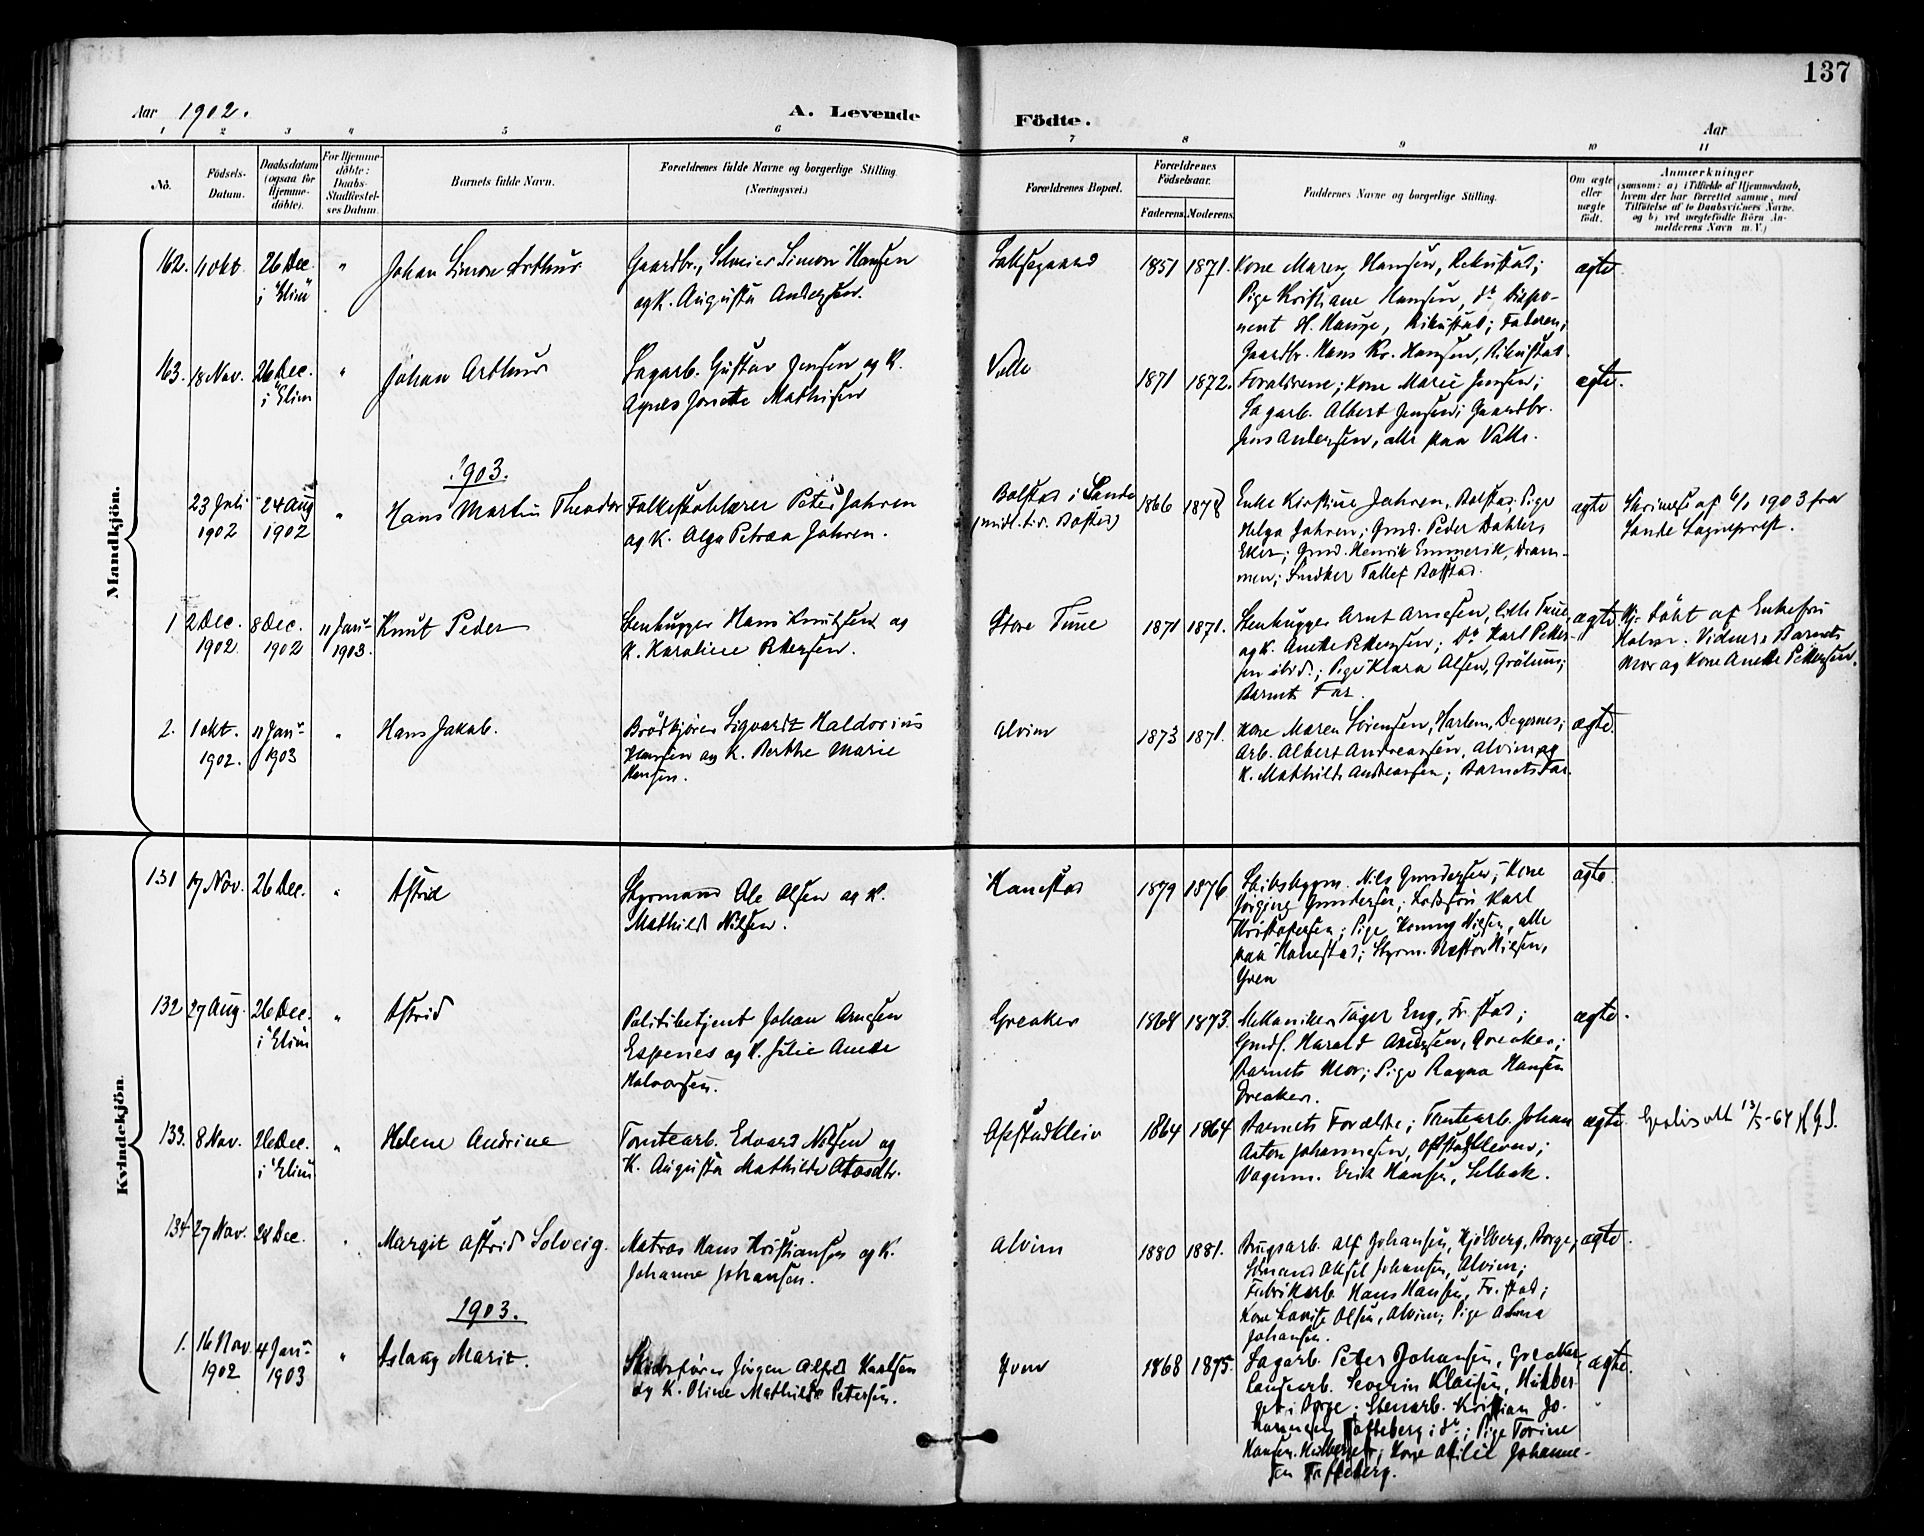 137
Aar 1902.
A. Levende Födte.
Aar
1 2 3 4 5 6 7 8 9 10 11
No.
Födsels-Datum.
Daabsdatum (ogsaa for Hjemme-döbte).
For Hjemme-döbte: Daabs-Stadfæstel-ses Datum.
Barnets fulde Navn.
Forældrenes fulde Navne og borgerlige Stilling.
(Næringsvei.)
Forældrenes Bopæl.
Forældrenes Födselsaar.
Faderens. Moderens.
Faddernes Navne og borgerlige Stilling.
Om ægte eller uægte födt.
Anmærkninger
(saasom: a) i Tilfælde af Hjemmedaab,
hvem der har forrettet samme, med
Tilföielse af to Daabsvidners Navne.
og b) ved uægtefödte Börn An-
melderens Navn m. V.)
Mandkjön.
162. 11 Okt. 26 Dec. i "Elim" " Johan Simon Arthur
Gaardbr., Simon Hansen
og K. Augusta Andersen.
1851 1871.
Kone Maren Hansen,
Pige Kristiane Hansen, do
nent H. Hauge, Faderen;
Gaardbr. Hans Kr. Hansen,
ægte
163. 18 Nov. 26 Dec. i Elim " Johan Arthur
Sagarb. Gustav Jensen og K.
Agnes Josette Mathisen
Valle
1871 1872.
Forældrene; Kone Marie Jensen;
Sagarb. Albert Jensen; Gaardbr.
Jens Andersen, alle paa Valle.
ægte.
1903.
23 Juli 1902 24 Aug 1902 " Hans Martin Theodor
Peter Jahren
og K. Olga Petrea Jahren.
Bolstad i Sande
1866 1878
Enke Kirstine Jahren, Bolstad; Pige
Helga Jahren; Gmd. Peder Dahler,
Eker; Gmd. Henrik Emmerik, Dram-
men;
ægte
Skrivelse af 6/1 1903 fra
Sande Sogneprest.
1 2 Dec. 1902 8 Dec. 1902 11 Janr 1903. Knut Peder
Stenhugger Hans Knutsen og
K. Karoline Pettersen.
Store Tune
1871 1871.
Stenhugger Arnt Arnesen, Lille Tune
og K. Anette Pettersen; Do Karl Petter-
sen ibid.; Pige Klara Olsen, Grålum;
Barnets Far.
ægte
Hj. döbt af Enkefru
Holm. Vidner: Barnets
Mor og Kone Anette Pettersen.
2. 1 Okt. 1902. 11 Janr 1903 " Hans Jakob.
Brödkjörer Sigvardt Haldorius
Hansen og K. Berthe Marie
Hansen.
Alvim
1873 1871.
Kone Maren Sörensen, Harlem, Degernes;
Arb. Albert Andreassen, Alvim og
K. Mathilde Andreassen; Barnets Far.
ægte.
Kvindekjön.
131 17 Nov. 26 Dec. " Astrid
Styrmand Ole Olsen og K.
Mathilde Nilsen.
Hanestad
1879 1876
Skibsbygm. Nils Gundersen; Kone
Gundersen; Karl
Kristofersen; Pige Nielsen, alle
paa Hanestad; Styrm. Nielsen,
Gren
ægte.
132 27 Aug. 26 Dec. i "Elim " Astrid
Politibetjent Johan Arnesen
Espenes og K. Julie Anette
Halvorsen.
Greaker
1868 1873.
Mekaniker Eng, Fr.stad;
Harald Greaker;
Barnets Mor; Pige Ragna Hansen
Greaker.
ægte.
133. 8 Nov. 26 Dec. i Elim " Helene Andrine
Tomtearb. Edvard Nilsen og
K. Augusta Mathilde
Opstadkleiv
1864 1864
Barnets Forældre; Tomtearb. Johan
Anton Johannesen,
Vognm. Erik Hansen, Selbak.
ægte
Gratis att. 13/5-64
134 27 Nov. 28 Dec. " Margit Astrid Solveig.
Matros Hans Kristiansen og K.
Johanne Johansen.
Alvim
1880 1881.
Brugsarb. Alf Johansen, Kjölberg, Borge;
Sömand Aksel Johansen, Alvim;
Fabrikarb. Hans Hansen, Fr.stad;
Kone Lovise Olsen, Alvim; Pige
Johansen.
ægte.
1903.
1. 16 Nov. 1902 4 Janr 1903 " Aslaug Marie.
Jörgen Alfred Karlsen
og K. Oline Mathilde Petersen.
1868 1875.
Sagarb. Peter Johansen, Greaker,
Landarb. Severin Klausen,
i Borge; Stenarb. Kristian Jo-
hannesen Tofteberg i do; Pige Torine
Hansen, Kone Otilie Johanne-
sen Tofteberg.
ægte.